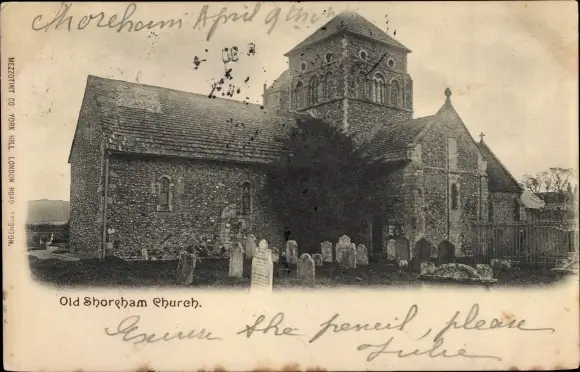 Shoreham April 9th
MEZZOTINT CO YORK HILL LONDON ROAD BRIGHTON.
Old Shoreham Church.
Excuse the pencil, please
Julie